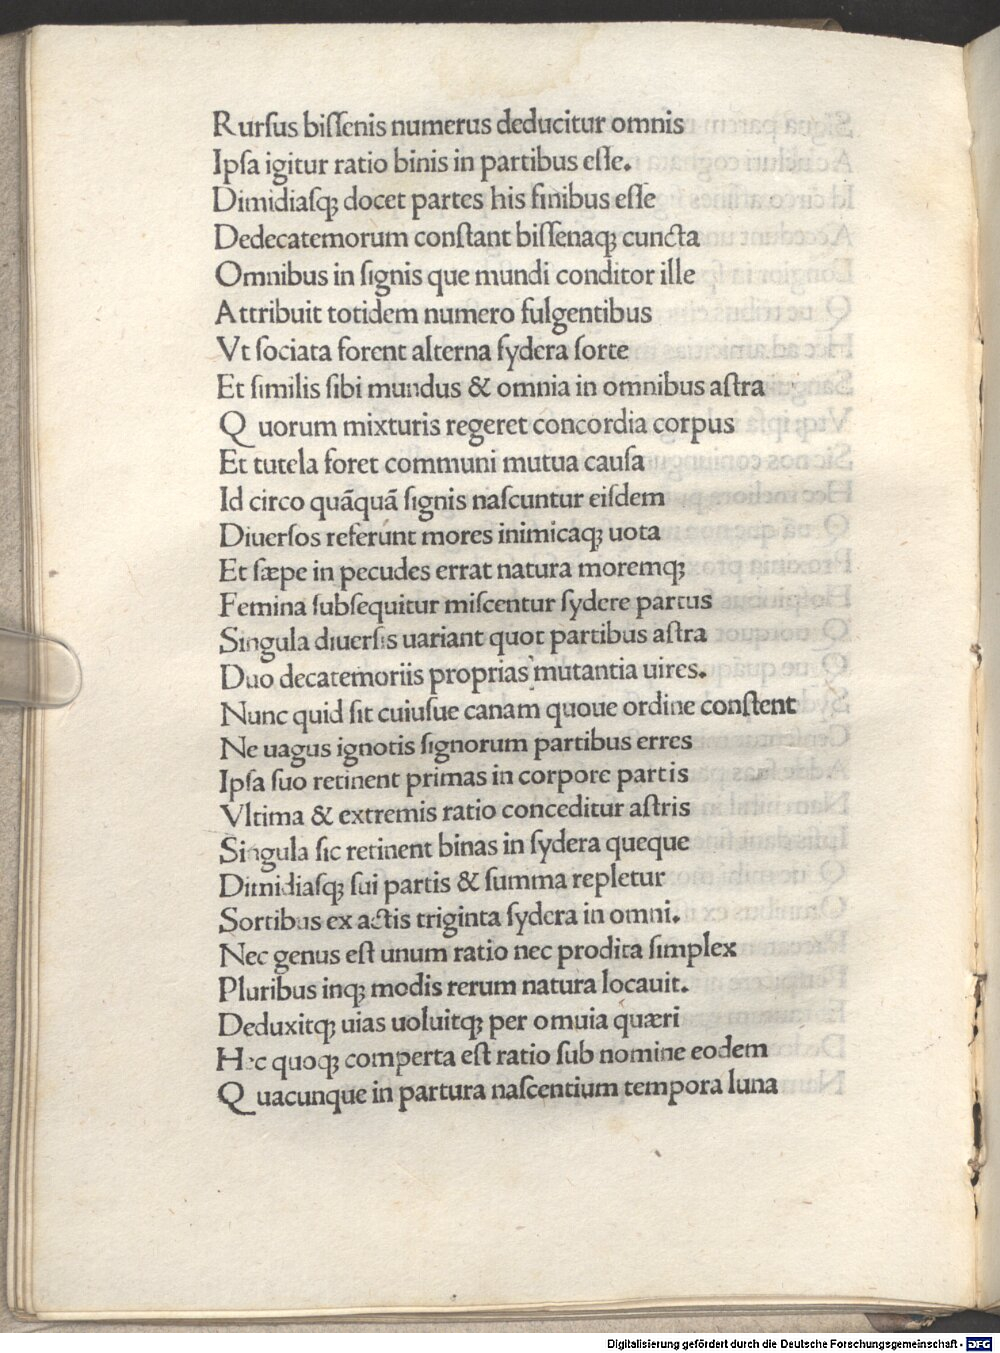 Rurſus biſſenis numerus deducitur omnis
Ipſa igitur ratio binis in partibus eſſe.
Dimidiaſqꝫ docet partes his finibus eſſe
Dedecatemorum conſtant biſſenaqꝫ cuncta
Omnibus in ſignis que mundi conditor ille
Attribuit totidem numero fulgentibus
Vt ſociata forent alterna ſydera ſorte
Et ſimilis ſibi mundus & omnia in omnibus aſtra
Quorum mixturis regeret concordia corpus
Et tutela foret communi mutua cauſa
Id circo quāquā ſignis naſcuntur eiſdem
Diuerſos referunt mores inimicaqꝫ uota
Et ſæpe in pecudes errat natura moremqꝫ
Femina ſubſequitur miſcentur ſydere partus
Singula diuerſis uariant quot partibus aſtra
Duo decatemoriis proprias mutantia uires.
Nunc quid ſit cuiuſue canam quoue ordine conſtent
Ne uagus ignotis ſignorum partibus erres
Ipſa ſuo retinent primas in corpore partis
Vltima & extremis ratio conceditur aſtris
Singula ſic retinent binas in ſydera queque
Dimidiaſqꝫ ſui partis & ſumma repletur
Sortibus ex actis triginta ſydera in omni.
Nec genus eſt unum ratio nec prodita ſimplex
Pluribus inqꝫ modis rerum natura locauit.
Deduxitqꝫ uias uoluitqꝫ per omuia quæri
Hec quoqꝫ comperta eſt ratio ſub nomine eodem
Quacunque in partura naſcentium tempora luna
Digitalisierung gefördert durch die Deutsche Forschungsgemeinschaft - DFG